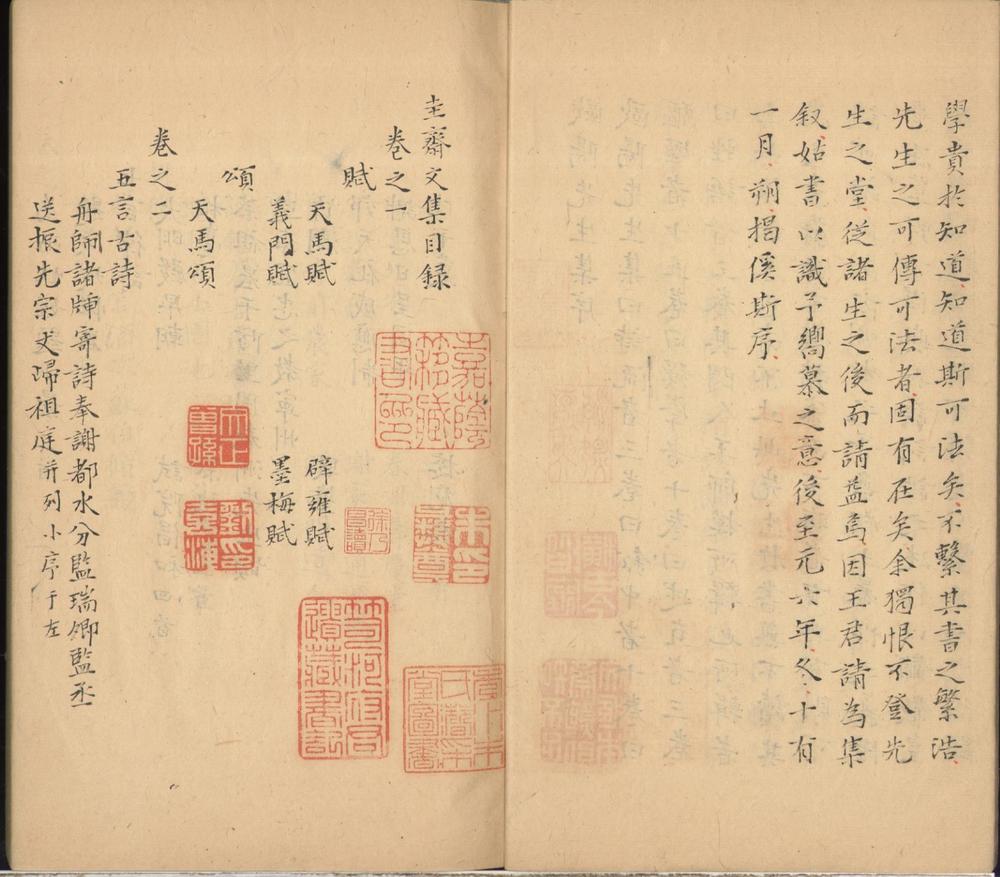 學貴於知道知道斯可法矣不繫其書之繁浩
先生之可傳可法者固有在矣余獨恨不登先
生之堂從諸生之後而請益焉因王君請為集
叙姑書以識予嚮慕之意後至元六年冬十有
一月朔揭傒斯序
圭齋文集目録
卷之一
賦
天馬賦 辟雍賦
義門賦 墨梅賦
頌
天馬頌
卷之二
五言古詩
舟師諸牌寄詩奉謝都水分監瑞卿監丞
送振先宗丈歸祖庭併列小序于左
嘉蔭簃藏書印